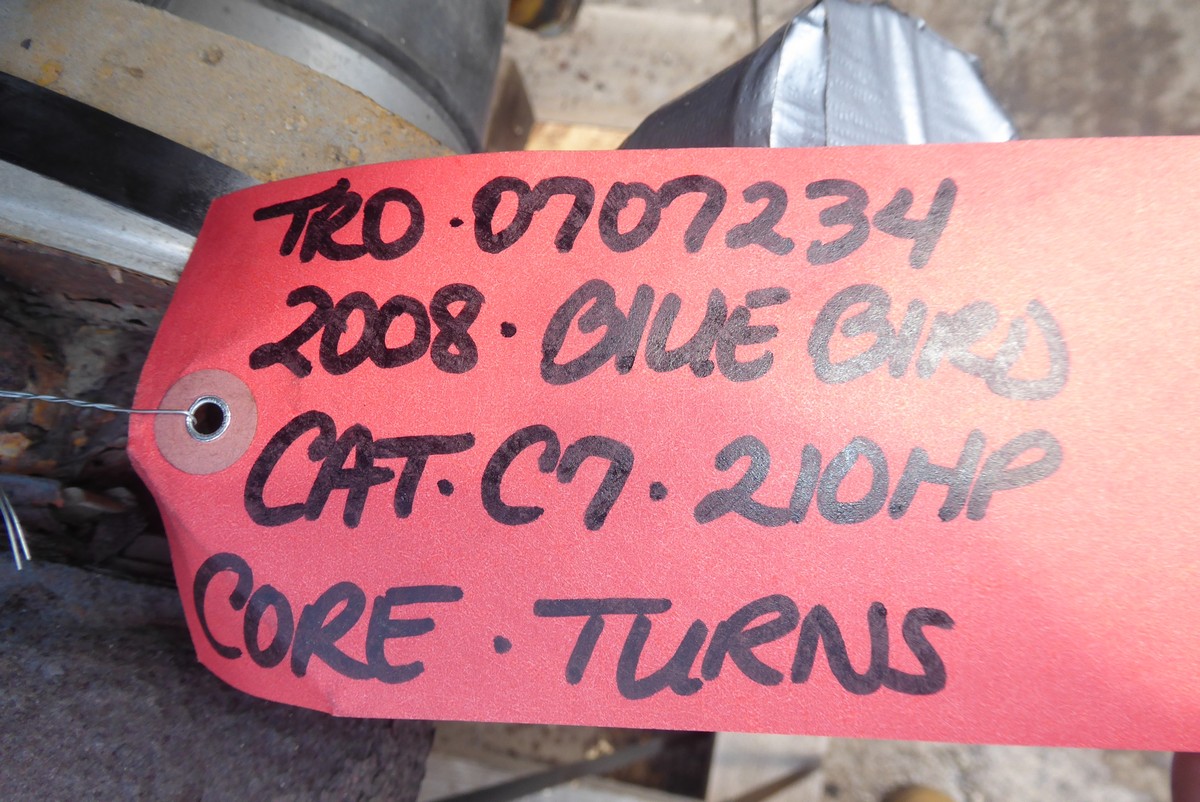 TRO · 0707234
2008 · BLUE BIRD
CAT · C7 · 210HP
CORE · TURNS